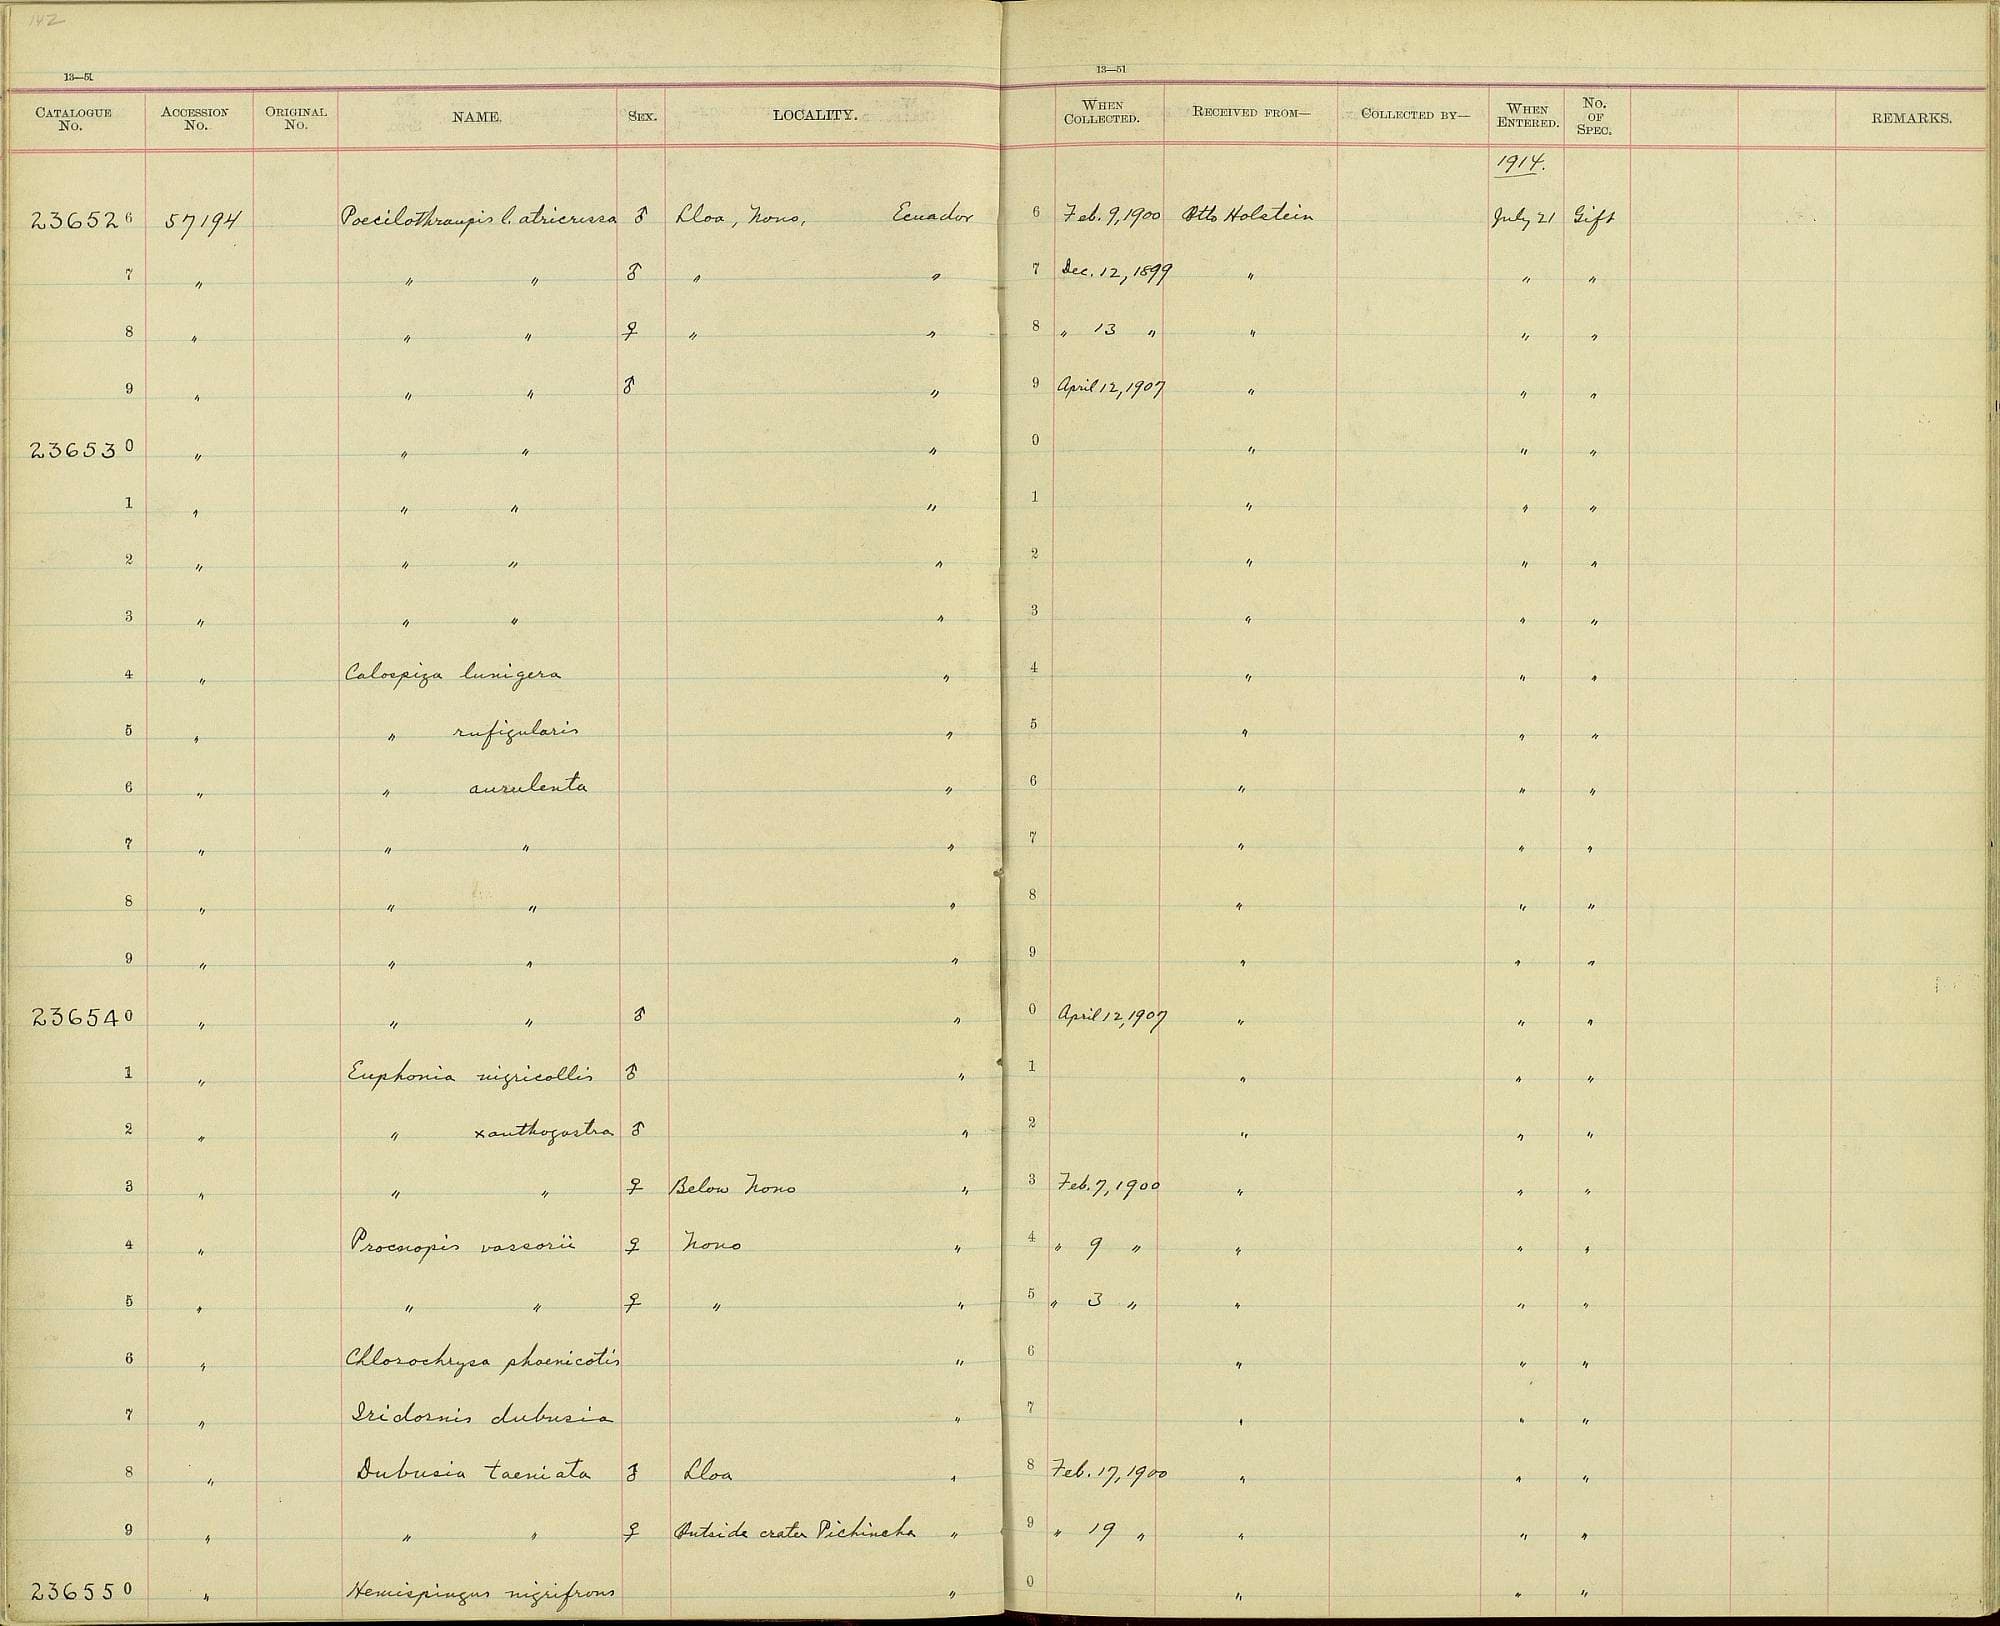 142
13—51 13—51
CATALOGUE No. ACCESSION No. ORIGINAL No. NAME. SEX. LOCALITY. WHEN COLLECTED. RECEIVED FROM— COLLECTED BY— WHEN ENTERED. No. OF SPEC. REMARKS.
1914.
236526 57194 Poecilothraupis l. atricrissa ♂ Lloa, Nono, Ecuador 6 Feb. 9, 1900 Otto Holstein July 21 Gift
7 " " " ♂ " " 7 Dec. 12, 1899 " " "
8 " " " ♀ " " 8 " 13 " " " "
9 " " " ♂ " 9 April 12, 1907 " " "
236530 " " " " 0 " " "
1 " " " " 1 " " "
2 " " " " 2 " " "
3 " " " " 3 " " "
4 " Calospiza lunigera " 4 " " "
5 " " rufigularis " 5 " " "
6 " " aurulenta " 6 " " "
7 " " " " 7 " " "
8 " " " " 8 " " "
9 " " " " 9 " " "
236540 " " " ♂ " 0 April 12, 1907 " " "
1 " Euphonia nigricollis ♂ " 1 " " "
2 " " xanthogastra ♂ " 2 " " "
3 " " " ♀ Below Nono " 3 Feb. 7, 1900 " " "
4 " Procnopis vassorii ♀ Nono " 4 " 9 " " " "
5 " " " ♀ " " 5 " 3 " " " "
6 " Chlorochrysa phoenicotis " 6 " " "
7 " Iridornis dubusia " 7 " " "
8 " Dubusia taeniata ♂ Lloa " 8 Feb. 17, 1900 " " "
9 " " " ♀ Outside crater Pichincha " 9 " 19 " " " "
236550 " Hemispingus nigrifrons " 0 " " "